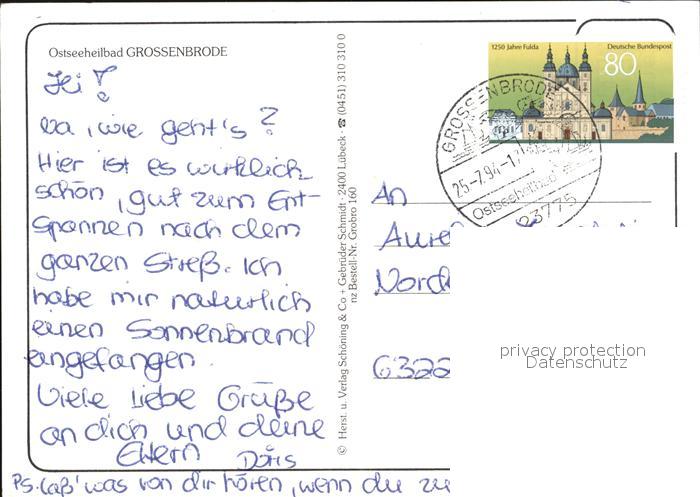 Ostseeheilbad GROSSENBRODE
Hi!
Na, wie geht's?
Hier ist es wirklich
schön, gut zum Ent-
spannen nach dem
ganzen Streß. Ich
habe mir natürlich
einen Sonnenbrand
eingefangen.
Viele liebe Grüße
an dich und deine
Eltern Doris
PS. Laß' was von dir hören, wenn du zu
© Herst. u. Verlag Schöning & Co + Gebrüder Schmidt · 2400 Lübeck · ☎ (0451) 310 310 0
nz Bestell-Nr. Grobro 160
1250 Jahre Fulda
Deutsche Bundespost
80
GROSSENBRODE
25-7.94-1
Ostseeheilbad
23775
An
6322
privacy protection
Datenschutz